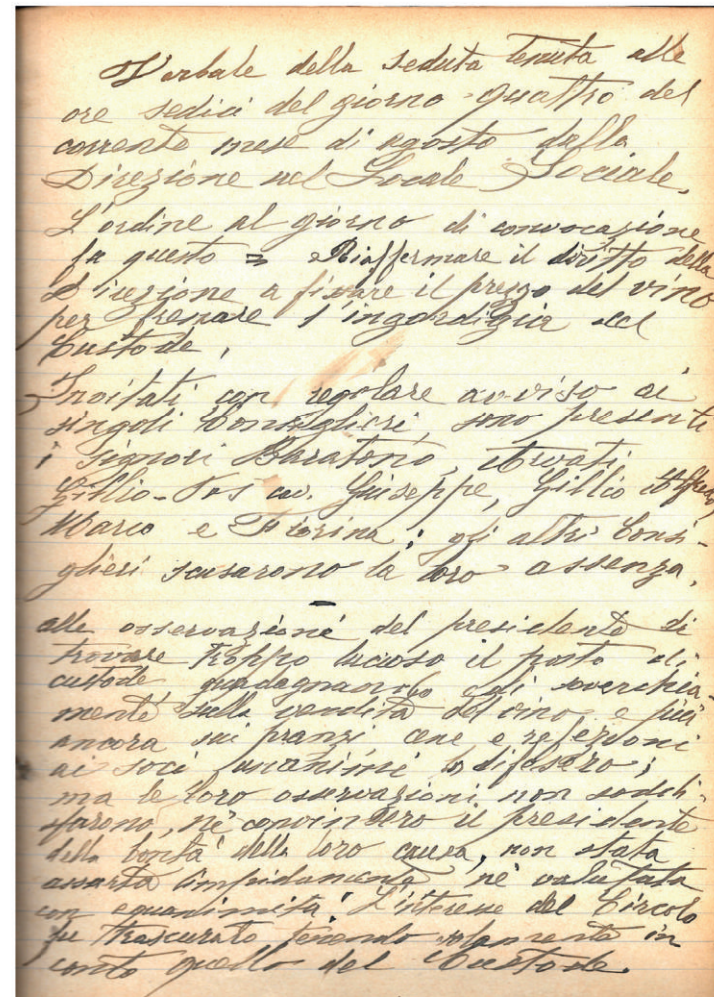 Verbale della seduta tenuta alle
ore sedici del giorno quattro del
corrente mese di agosto dalla
Direzione nel Locale Sociale.
L'ordine al giorno di convocazione
fu questo = Riaffermare il diritto della
Direzione a fissare il prezzo del vino
per frenare l'ingordigia del
Custode.
Invitati con regolare avviso ai
singoli Consiglieri, sono presenti
i signori Baratono,
Gillio-Tos cav. Giuseppe, Gillio
Marco e Fiorina; gli altri Consi-
glieri scusarono la loro assenza.
alle osservazioni del presidente di
trovare troppo lucroso il posto di
custode, guadagnando egli soverchia-
mente sulla vendita del vino e più
ancora sui pranzi cene e refezioni
ai soci unanimi lo difesero;
ma le loro osservazioni non soddi-
sfarono, nè convinsero il presidente
della bontà della loro causa, non stata
nè valutata
con equanimità. L'interesse del Circolo
fu trascurato tenendo solamente in
conto quello del Custode.